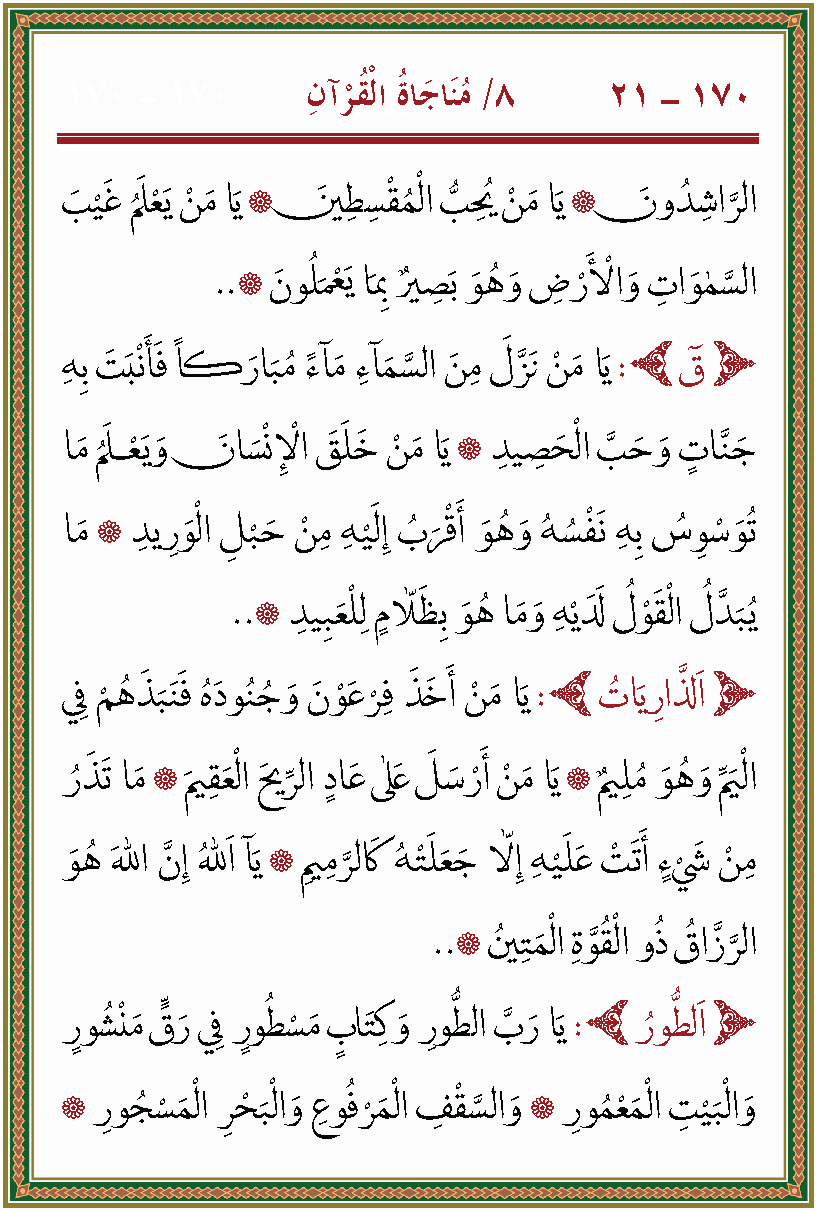 ١٧٠ - ٢١ ٨/ مُنَاجَاةُ الْقُرْآنِ
الرَّاشِدُونَ ۞ يَا مَنْ يُحِبُّ الْمُقْسِطِينَ ۞ يَا مَنْ يَعْلَمُ غَيْبَ
السَّمٰوَاتِ وَالْأَرْضِ وَهُوَ بَصِيرٌ بِمَا يَعْمَلُونَ ۞..
﴿ قٓ ﴾: يَا مَنْ نَزَّلَ مِنَ السَّمَآءِ مَآءً مُبَارَكاً فَأَنْبَتَ بِهِ
جَنَّاتٍ وَحَبَّ الْحَصِيدِ ۞ يَا مَنْ خَلَقَ الْإِنْسَانَ وَيَعْلَمُ مَا
تُوَسْوِسُ بِهِ نَفْسُهُ وَهُوَ أَقْرَبُ إِلَيْهِ مِنْ حَبْلِ الْوَرِيدِ ۞ مَا
يُبَدَّلُ الْقَوْلُ لَدَيْهِ وَمَا هُوَ بِظَلَّامٍ لِلْعَبِيدِ ۞..
﴿ اَلذَّارِيَاتُ ﴾: يَا مَنْ أَخَذَ فِرْعَوْنَ وَجُنُودَهُ فَنَبَذَهُمْ فِي
الْيَمِّ وَهُوَ مُلِيمٌ ۞ يَا مَنْ أَرْسَلَ عَلٰى عَادٍ الرِّيحَ الْعَقِيمَ ۞ مَا تَذَرُ
مِنْ شَيْءٍ أَتَتْ عَلَيْهِ إِلَّا جَعَلَتْهُ كَالرَّمِيمِ ۞ يَآ اَللهُ إِنَّ اللهَ هُوَ
الرَّزَّاقُ ذُو الْقُوَّةِ الْمَتِينُ ۞..
﴿ اَلطُّورُ ﴾: يَا رَبَّ الطُّورِ وَكِتَابٍ مَسْطُورٍ فِي رَقٍّ مَنْشُورٍ
وَالْبَيْتِ الْمَعْمُورِ ۞ وَالسَّقْفِ الْمَرْفُوعِ وَالْبَحْرِ الْمَسْجُورِ ۞